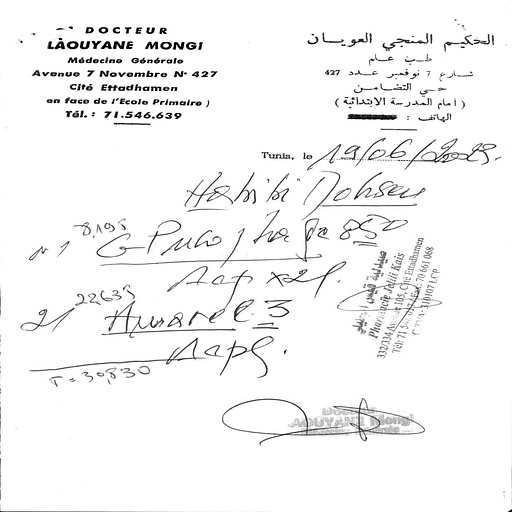 DOCTEUR
LAOUYANE MONGI
Médecine Générale
Avenue 7 Novembre N° 427
Cité Ettadhamen
en face de l'Ecole Primaire )
Tél. : 71.546.639
الحكيم المنجي العويان
طب عام
شارع 7 نوفمبر عدد 427
حي التضامن
( امام المدرسة الابتدائية )
الهاتف :
Tunis, le 19/06/2023.
Habibi Mohsen
8,195
850
1cp x 2/j.
22,635
21 Amarel 3
1cp/j.
T = 30,830
صيدلية قيس الجليل
Pharmacie Jalil Kais
332/334 Avenue 105, Cité Ettadhamen
Tél: 71 70 661 068
Docteur
LAOUYANE Mongi